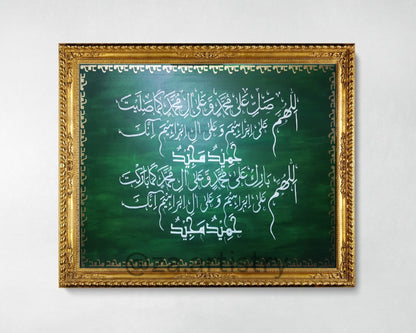 اللهم صل على محمد وعلى آل محمد كما صليت
على إبراهيم وعلى آل إبراهيم إنك
حميد مجيد
اللهم بارك على محمد وعلى آل محمد كما باركت
على إبراهيم وعلى آل إبراهيم إنك
حميد مجيد
@za.artistry